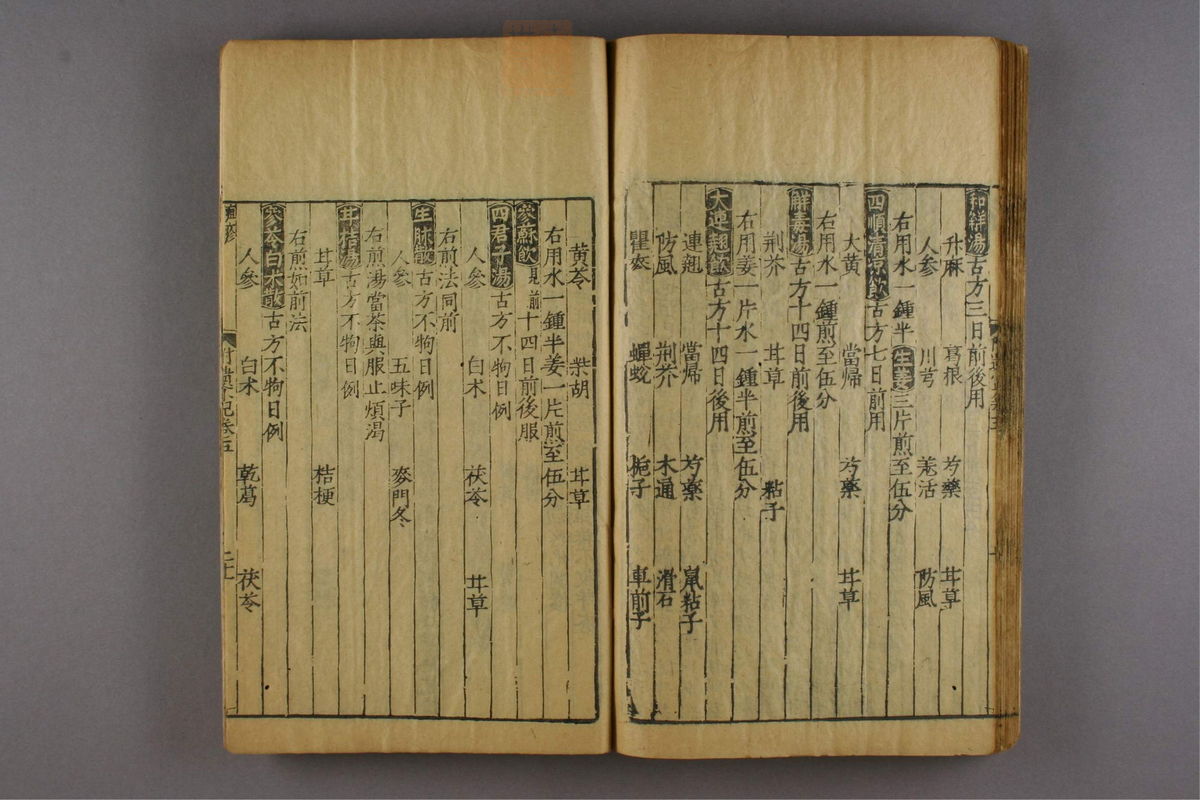 和解湯古方三日前後用
升麻 葛根 芍藥 甘草
人參 川芎 羗活 防風
右用水一鍾半生姜三片煎至伍分
四順清凉飲古方七日前用
大黄 當歸 芍藥 甘草
右用水一鍾煎至伍分
解毒湯古方十四日前後用
荆芥 甘草 粘子
右用姜一片水一鍾半煎至伍分
大連翹飲古方十四日後用
連翹 當歸 芍藥 鼠粘子
防風 荆芥 木通 滑石
瞿麥 蟬蛻 梔子 車前子
黄芩 柴胡 甘草
右用水一鍾半姜一片煎至伍分
參蘇飲見前十四日前後服
四君子湯古方不拘日例
人參 白术 茯苓 甘草
右煎法同前
生脉散古方不拘日例
人參 五味子 麥門冬
右煎湯當茶與服止煩渴
甘桔湯古方不拘日例
甘草 桔梗
右煎如前法
參苓白术散古方不拘日例
人參 白术 乾葛 茯苓